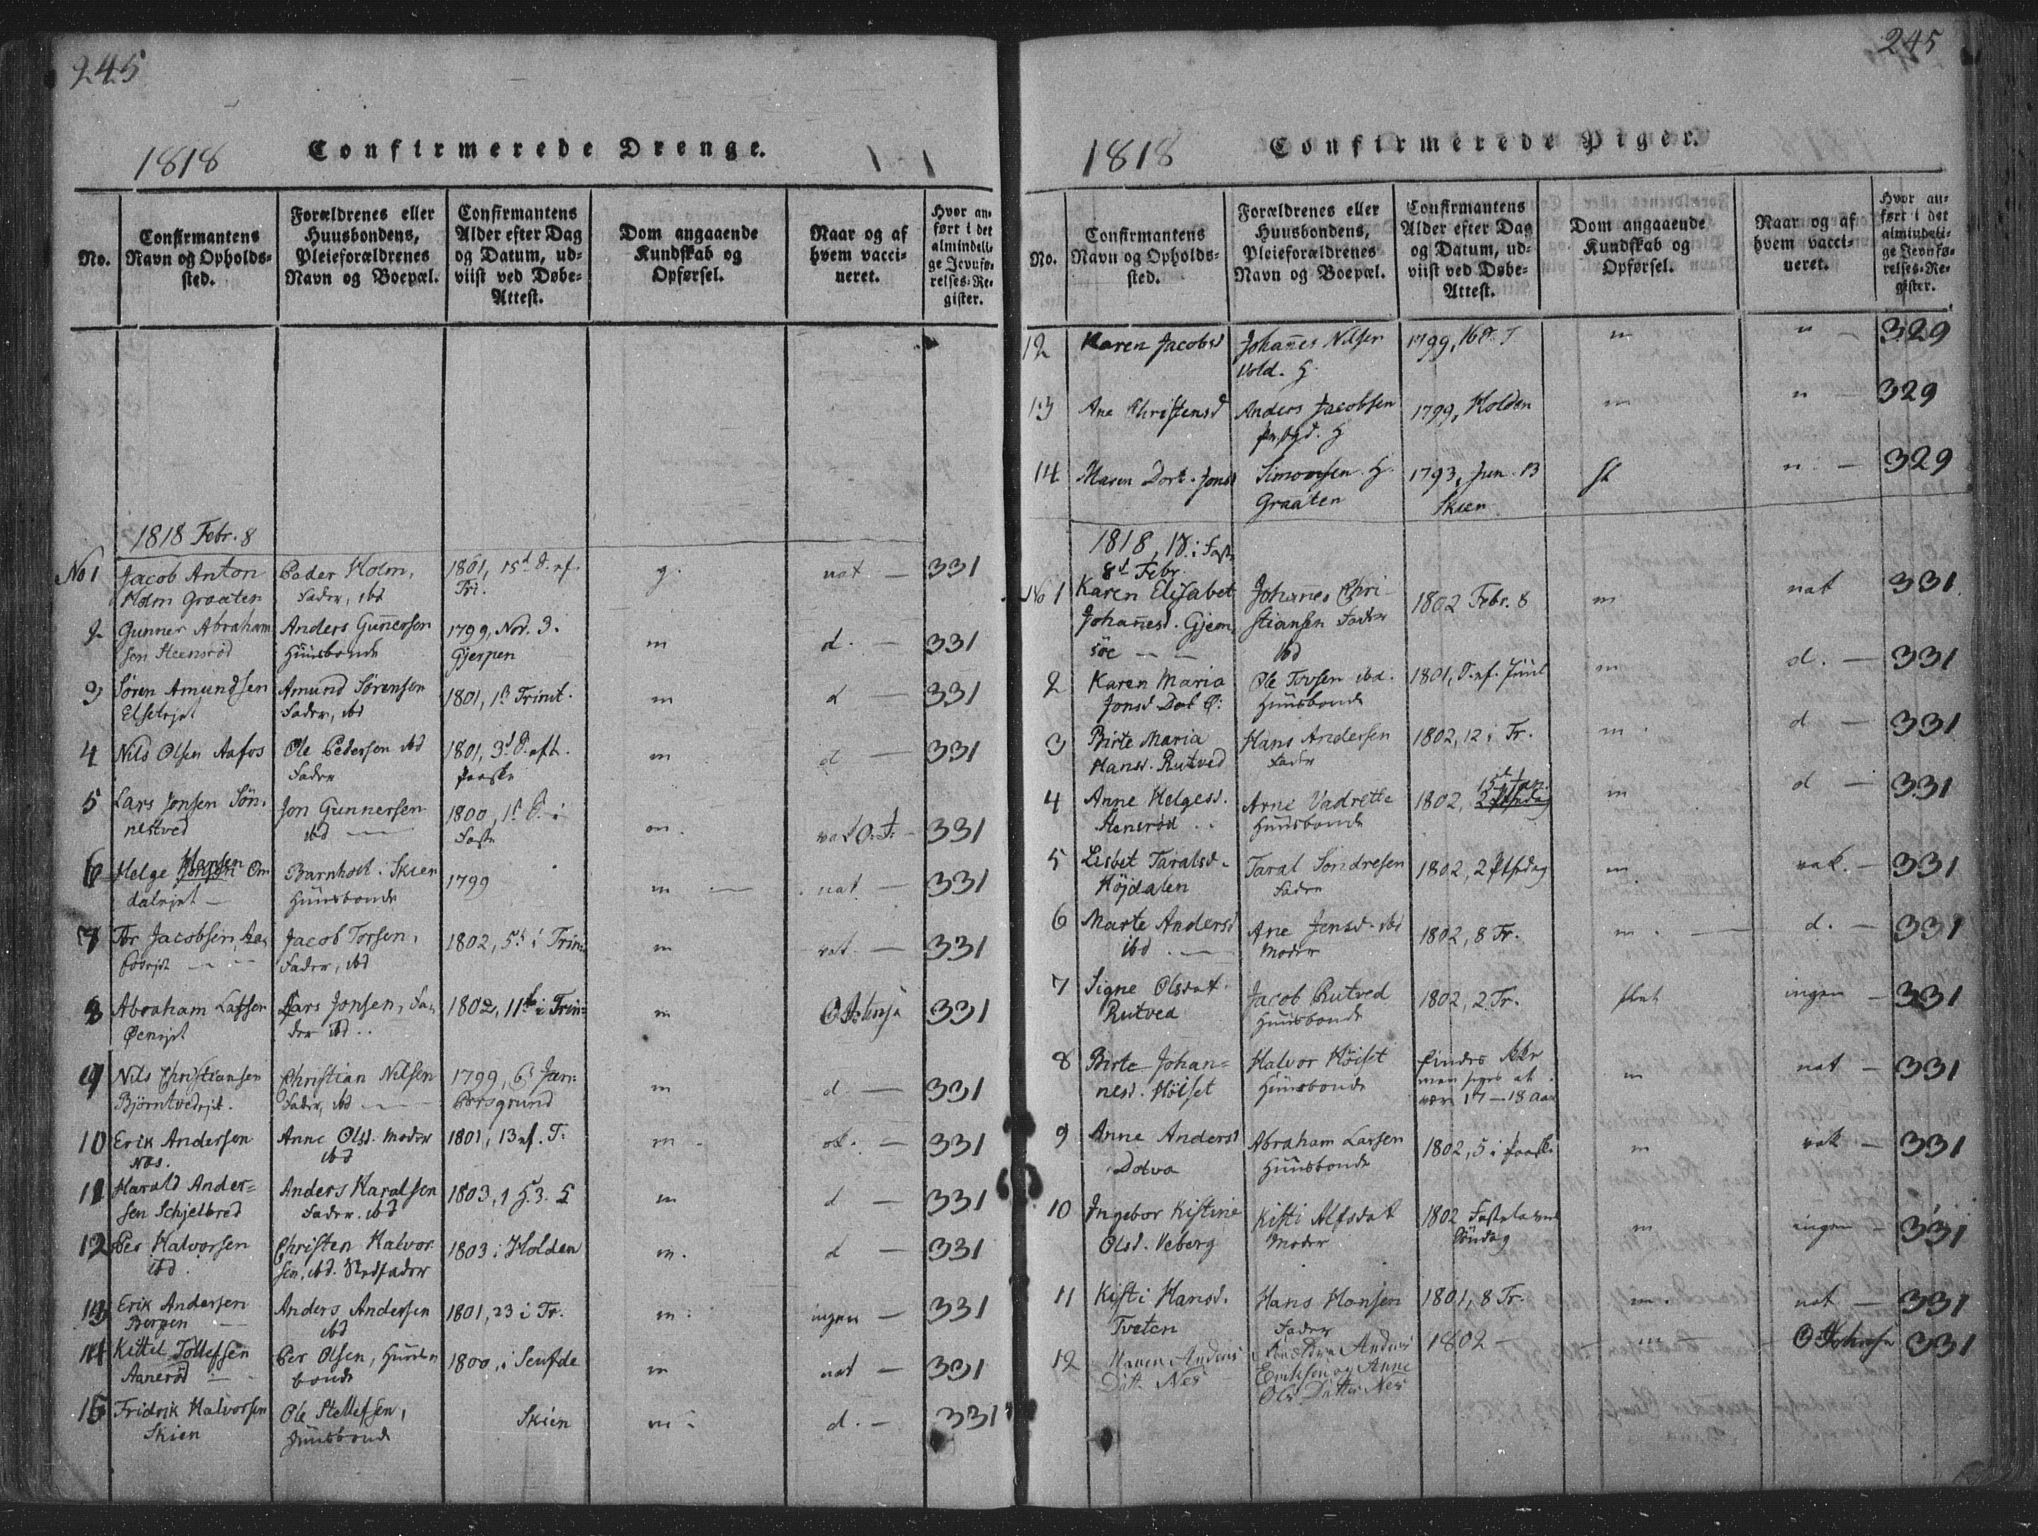 245
1818 Confirmerede Drenge.
No.
Confirmantens Navn og Opholds-sted.
Forældrenes eller Huusbondens, Pleieforældrenes Navn og Boepæl.
Confirmantens Alder efter Dag og Datum, ud-viist ved Døbe-Attest.
Dom angaaende Kundskab og Opførsel.
Naar og af hvem vacci-neret.
Hvor an-ført i det almindeli-ge Jevnfø-relses-Re-gister.
1818 Febr. 8
No 1 Jacob Anton Peder Holm, 1801, 15d S. ef. g. nat — 331
Holm Graaten Fader, ibd Tri.
2 Gunner Abraham Anders Gunersen 1799, Nov. 3. m d. — 331
sen Steensrød Huusbonde Gjerpen
3 Søren Amundsen Amund Sørensen 1801, 1d Trinit. m d — 331
Elsetejet Fader, ibd
4 Nils Olsen Aafos Ole Pedersen ibd 1801, 3d S. eft. m d — 331
Fader Paaske
5 Lars Jonsen Søn- Jon Gunnersen 1800, 1d S. i m. 331
nestved ibd — Faste
6 Helge Hansen Om Barnholt i Skien 1799 m — nat — 331
dalejet — Huusbonde
7 Tor Jacobsen Jacob Torsen, 1802, 5d i Trin m nat — 331
Fader, ibd
8 Abraham Larsen Lars Jonsen, Fa- 1802, 11te i Trin m 331
Øenejet der ibd..
9 Nils Christiansen Christian Nilsen 1799, 6d Jan: m d — 331
Bjørntvedejet. Fader, ibd — Porsgrund
10 Erik Andersen Anne Olsd. Moder 1801, 13 ef. T. m. d. — 331
Nøs. ibd
11 Harald Ander- Anders Haralsen 1803, 1 H. 3. S m d — 331
sen Schjelbred Fader. ibd
12 Per Halvorsen Christen Halvor 1803 i Holden m. d — 331
ibd. sen, ibd. Stedfader
13 Erik Andersen Anders Andersen 1801, 23 i Tr. m. ingen — 331
Bergen — ibd
14 Kittel Tollefsen Per Olsen, Huus 1800, i Seufde m nat — 331
Aanerød — bonde
15 Fridrik Halvorsen Ole Stellefsen, Skien m. d. — 331
Skien Huusbonde
245
1818 Confirmerede Piger.
No.
Confirmantens Navn og Opholds-sted.
Forældrenes eller Huusbondens, Pleieforældrenes Navn og Boepæl.
Confirmantens Alder efter Dag og Datum, ud-viist ved Døbe-Attest.
Dom angaaende Kundskab og Opførsel.
Naar og af hvem vacci-neret.
Hvor an-ført i det almindeli-ge Jevnfø-relses-Re-gister.
12 Karen Jacobsd Johanes Nilsen 1799, 16 S. T m n — 329
Vold. H.
13 Ane Christensd Anders Jacobsen 1799, Holden m n — 329
H
14 Maren Dort. Jonsd Simonsen. H. 1793, Jun. 13 n. — 329
Graaten Skien
1818, 1S. i Faste
8d Febr.
No 1 Karen Elisabet Johanes Chri- 1802 Febr. 8 m. nat 331
Johanesd. Gjem stiansen Fader
søe — — ibd
2 Karen Maria Ole Tovsen ibd. 1801, S. ef. Juul m d. — 331
Jonsd Dal Ø: Huusbonde
3 Birte Maria Hans Andersen 1802, 12 i Tr. m. d — 331
Hansd. Rutved Fader
4 Anne Helgesd. Arne Vadrette 1802, m d — 331
Stensrød .. Huusbonde
5 Lisbet Taralsd. Taral Sondresen 1802, 2 Ptsedag m. vak. — 331
Højdalen Fader
6 Marte Andersd Ane Jensd. ibd 1802, 8 Tr. m. — d. — 331
ibd. — Moder
7 Signe Olsdat. Jacob Rutved 1802, 2 Tr. slet ingen — 331
Rutved Huusbonde
8 Birte Johan- Halvor Höiset Findes ikke m nat — 331
nesd. Höiset Huusbonde men siges at
være 17 — 18 Aar
9 Anne Andersd Abraham Larsen 1802, 5 i Paaske m vak — 331
Dolva Huusbonde
10 Ingebor Kistine Kisti Alfsdat 1802 Fastelavens m ingen — 331
Olsd. Veberg Moder Søndag
11 Kisti Hansd. Hans Hansen 1801, 8 Tr. m. nat — 331
Tveten Fader
12 Maren Anders Anders 1802 — m — 331
Datt. Nes Eriksen og Anne
Ols Datter Nes